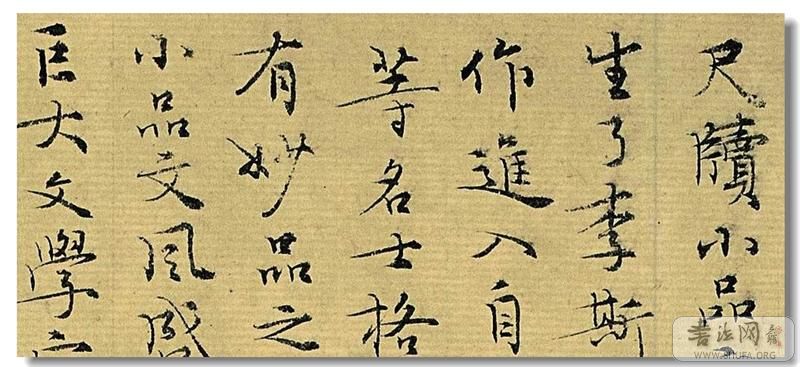 尺牘小品
生了李斯
作進入自
等名士格
有妙品之
小品文風盛
巨大文學
书法网
WWW.SHUFA.ORG